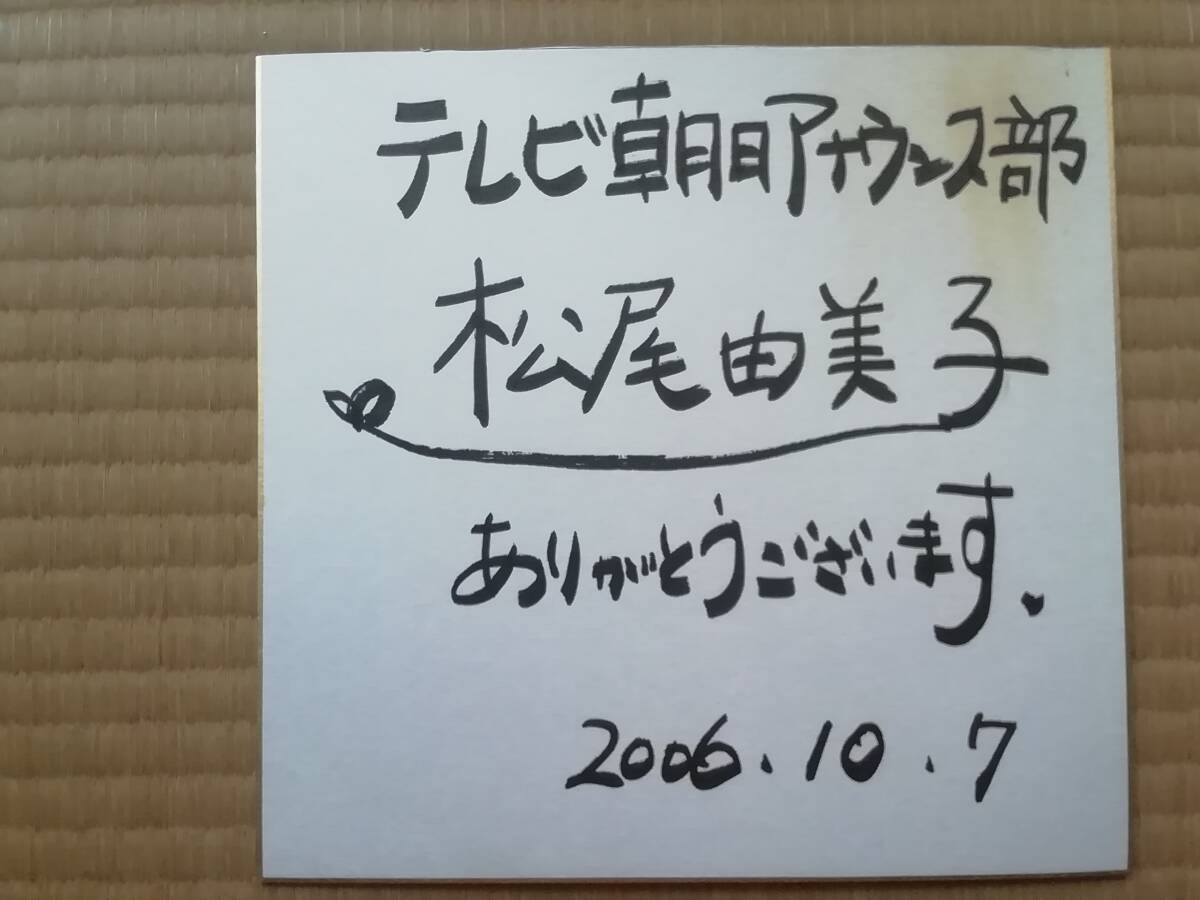 テレビ朝日アナウンス部
松尾由美子
ありがとうございます.
2006.10.7